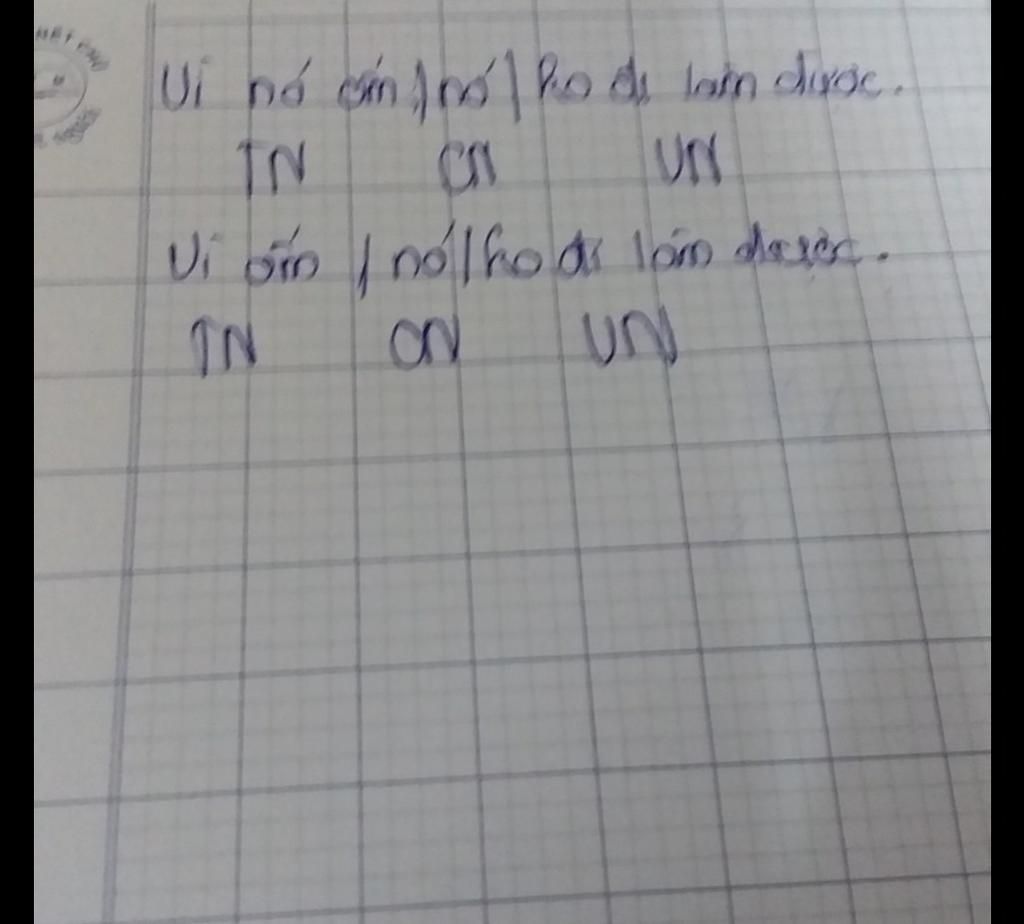 Vì nó ốm, / nó / ko đi làm được.
TN CN VN
Vì ốm, / nó / ko đi làm được.
TN CN VN